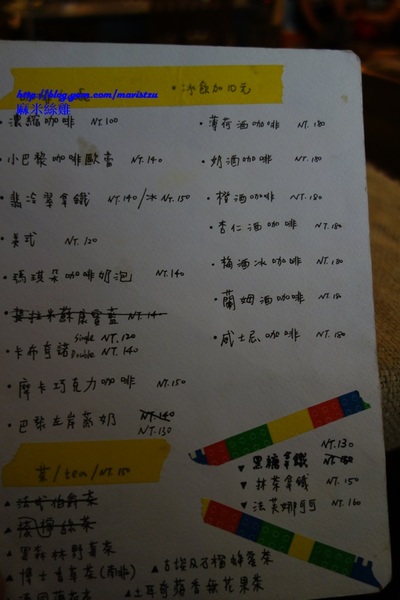 http://blog.yam.com/mavistzu
麻米絲雞
·冰飲加10元
·濃縮咖啡 NT.100
·小巴黎咖啡歐蕾 NT.140
·翡冷翠拿鐵 NT.140/冰NT.150
·美式 NT.120
·瑪琪朵咖啡奶泡 NT.140
NT.140
·卡布奇諾 Single NT.120
Double NT.140
·摩卡巧克力咖啡 NT.150
·巴黎左岸蒸奶 NT.140
NT.130
·薄荷酒咖啡 NT.180
·奶酒咖啡 NT.180
·橙酒咖啡 NT.180
·杏仁酒咖啡 NT.180
·梅酒冰咖啡 NT.180
·蘭姆酒咖啡 NT.180
·威士忌咖啡 NT.180
NT.130
▼黑糖拿鐵 NT.150
▼抹茶拿鐵 NT.150
▼法芙娜可可 NT.160
茶/tea/NT.150
▲黑森林野莓茶
▲博士香草茶(南非)
▲土耳奇蘋香無花果茶